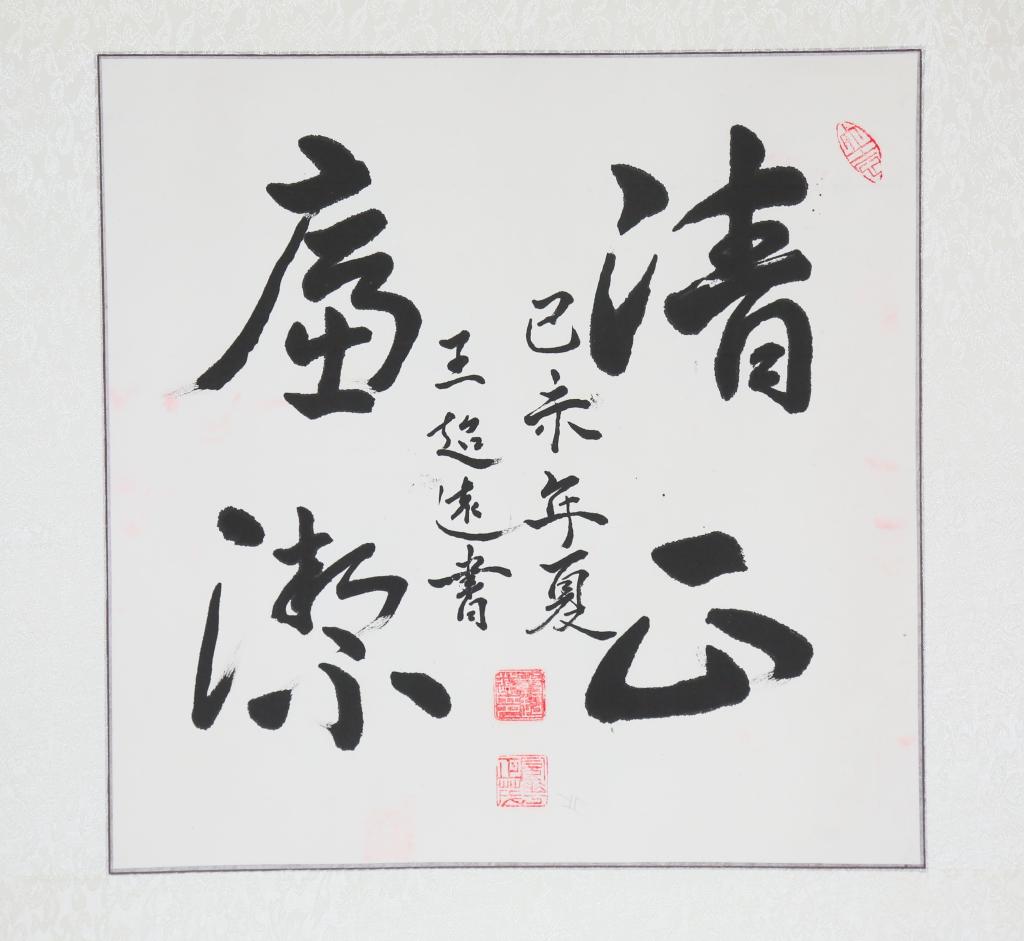 清正
廉潔
己未年夏
王超遠書